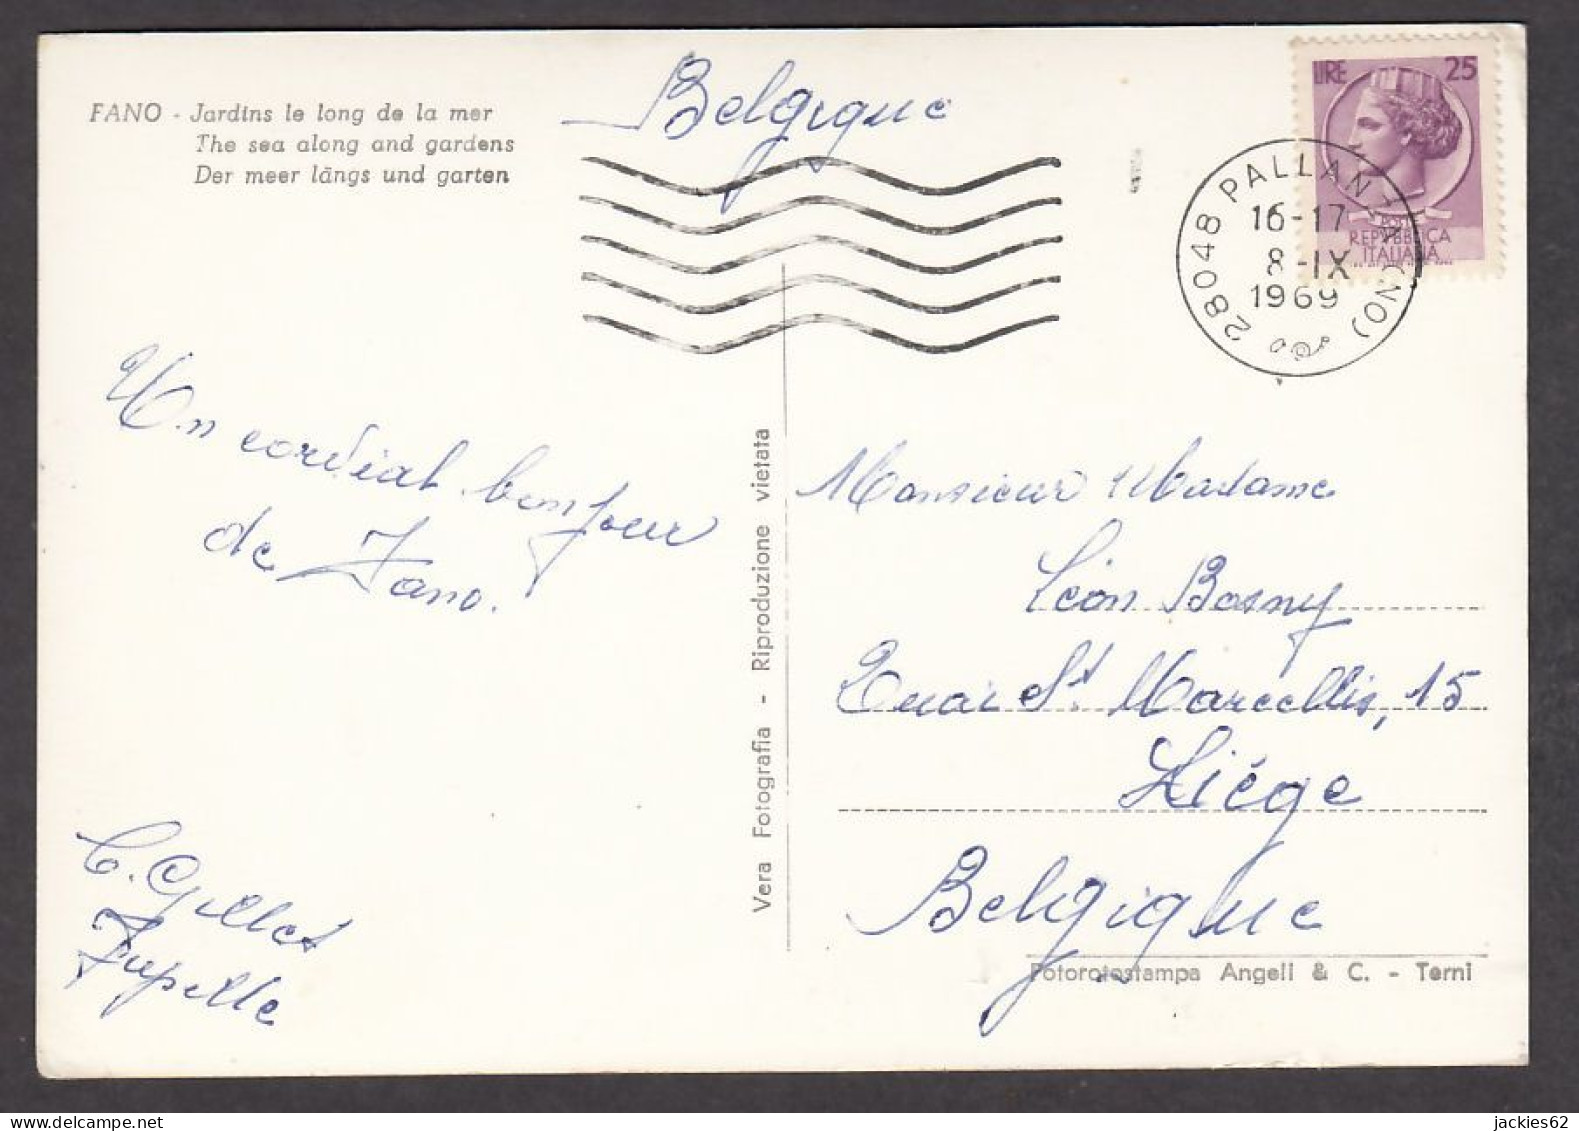 FANO - Jardins le long de la mer
The sea along and gardens
Der meer längs und garten
Belgique
LIRE 25
POSTE
REPVBBLICA
ITALIANA
28048 PALLANZA
16-17
8-IX
1969
Un cordial bonjour
de Fano.
C. Gillet
Jupille
Vera Fotografia - Riproduzione vietata
Monsieur Madame
Léon Bosny
Quai St. Marcellis, 15
Liége
Belgique
Fotorotostampa Angeli & C. - Terni
jackies62